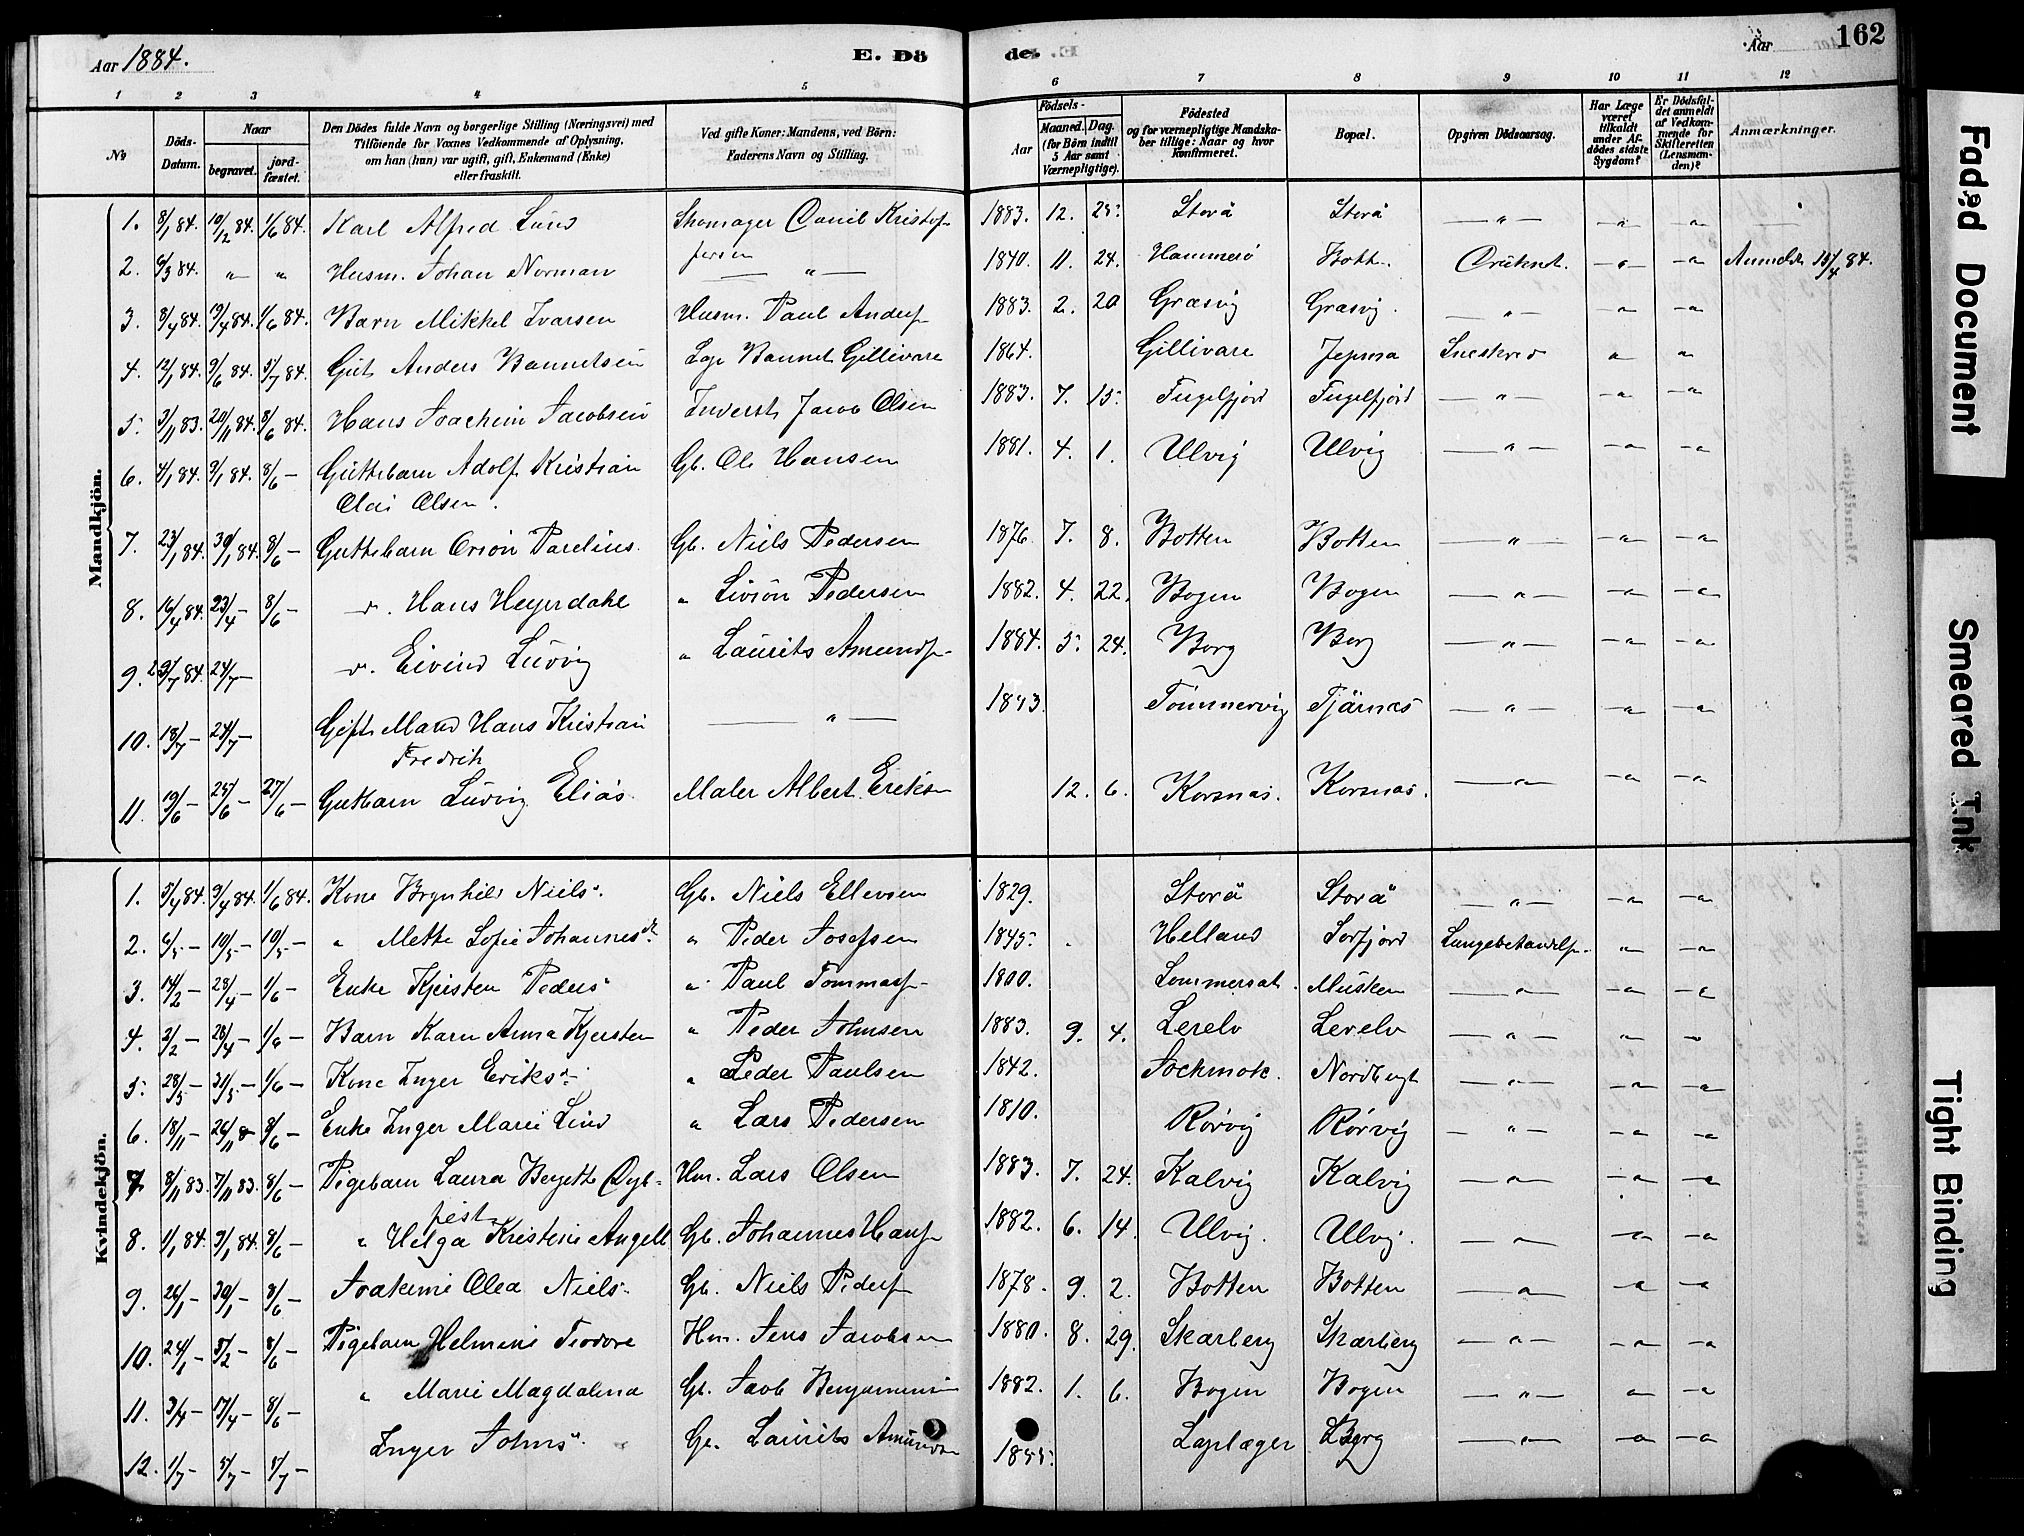 Aar 1884. E. Dö de. Aar 162
1 2 3 4 5 6 7 8 9 10 11 12
No Döds-Datum. Naar begravet. jord-fæstet. Den Dödes fulde Navn og borgerlige Stilling (Næringsvei) med Tilföiende for Voxnes Vedkommende af Oplysning, om han (hun) var ugift, gift, Enkemand (Enke) eller fraskilt. Ved gifte Koner: Mandens, ved Börn: Faderens Navn og Stilling. Födsels- Aar Maaned. Dag. (for Börn indtil 5 Aar samt Værnepligtige). Födested og for værnepligtige Mandska-ber tillige: Naar og hvor konfirmeret. Bopæl. Opgiven Dödsaarsag. Har Læge været tilkaldt under Af-dödes sidste Sygdom? Er Dödsfal-det anmeldt af Vedkom-mende for Skifteretten (Lensman-den)? Anmærkninger.
Mandkjön.
1. 8/1 84. 10/12 84. 1/6 84. Karl Alfred Lund Skomager Daniel Kristof-fersen 1883. 12. 25. Storå Storå — " — — " — "
2. 6/3 84. " " Husm. Johan Norman — " — 1840. 11. 24. Hammerö Bott. Druknet. — " — — " Anmeldt 15/4 84.
3. 8/4 84. 19/4 84. 1/6 84. Barn Mikkel Ivarsen Husm. Paul Anders 1883. 2. 20 Græsvig Græsvig. — " — — " — — "
4. 12/1 84. 9/6 84. 5/7 84. Gut Anders Bannetsen Lap Bannet Gillivare 1864. Gillivare Jepma Sneskred " "
5. 3/11 83. 20/11 84. 8/6 84. Hans Joachim Jacobsen Inderst Jacob Olsen 1883. 7. 15. Fugelfjord Fugelfjord — " — — " — — "
6. 4/1 84. 9/1 84. 8/6 — Guttebarn Adolf Kristian Gb. Ole Hansen 1881. 4. 1. Ulvig Ulvig — " — — " — — "
Olai Olsen.
7. 23/1 84. 30/1 84. 8/6 — Guttebarn Orion Parelius. Gb. Niels Pedersen 1876. 7. 8. Botten Botten — " — — " — — "
8. 16/4 84. 23/4 — 8/6 — d. Hans Heyerdahl " Sivion Pedersen 1882. 4. 22. Bogen Bogen — " — — " — — "
9. 23/7 84. 24/7 — d. Eivind Ludvig " Laurits Amunds 1884. 5. 24. Borg Borg — " — — " — — "
10. 18/7 — 24/7 — Gift Mand Hans Kristian — " — 1843. Tömmervig Tjärnes — " — — " — — "
Fredrik
11. 19/6 — 25/6 — 27/6 — Gutbarn Ludvig Elias. Maler Albert Eriksen 12. 6. Korsnas. Korsnas. — " — — " — — "
Kvindekjön.
1. 5/4 84. 9/4 84. 1/6 84. Kone Brynhild Niels. Gb. Niels Ellevsen 1829. Storå Storå — " — — " — — "
2. 6/5 — 10/5 — 10/5 — " Mette Sofie Johannesdt. " Peder Josefsen 1845. Helland Sorfjord — " — — "
3. 14/2 — 28/4 — 1/6 — Enke Kjersten Peders. " Paul Tommass 1800. Sommerset. Musken — " — — " — — "
4. 2/2 — 28/4 — 1/6 — Barn Karn Anna Kjersten " Peder Johnsen 1883. 9. 4. Lerelv Lerelv — " — — " — "
5. 28/5 — 31/5 — 1/6 — Kone Inger Eriksd. " Peder Paulsen 1842. Jockmok. Nordbugt — " — — " — — "
6. 18/11 — 26/11 8/6 — Enke Inger Marie Lind " Lars Pedersen 1810. Rörvig Rörvig — " — — " — — "
7 8/11 83. 7/11 83. 8/6 — Pigebarn Laura Bergette Dyb- Hm. Lars Olsen 1883. 7. 24. Kalvig Kalvig — " — — " — — "
fest
8. 1/1 84. 9/1 84. 8/6 — " Helga Kristine Angell Gb. Johannes Hans 1882. 6. 14. Ulvig. Ulvig. — " — — " — — "
9. 26/1 — 30/1 — 8/6 — Joakime Olea Niels. Gb. Niels Peders 1878. 9. 2. Botten Botten — " — — " — — "
10. 24/1 — 5/2 — 8/6 — Pigebarn Helmine Teodore Hm. Jens Jacobsen 1880. 8. 29. Skarberg Skarberg — " — — " — — "
11. 3/4 — 17/4 — 8/6 — " Marie Magdalena Gb. Jacob Benjaminsen 1882. 1. 6. Bogen Bogen — " — — " — — "
12. 1/7 — 5/7 — 5/7 — Inger Johns. Gb. Laurits Amundsen 1855. Laplæger Borg — " — — " — — "
Faded Document
Smeared Ink
Tight Binding